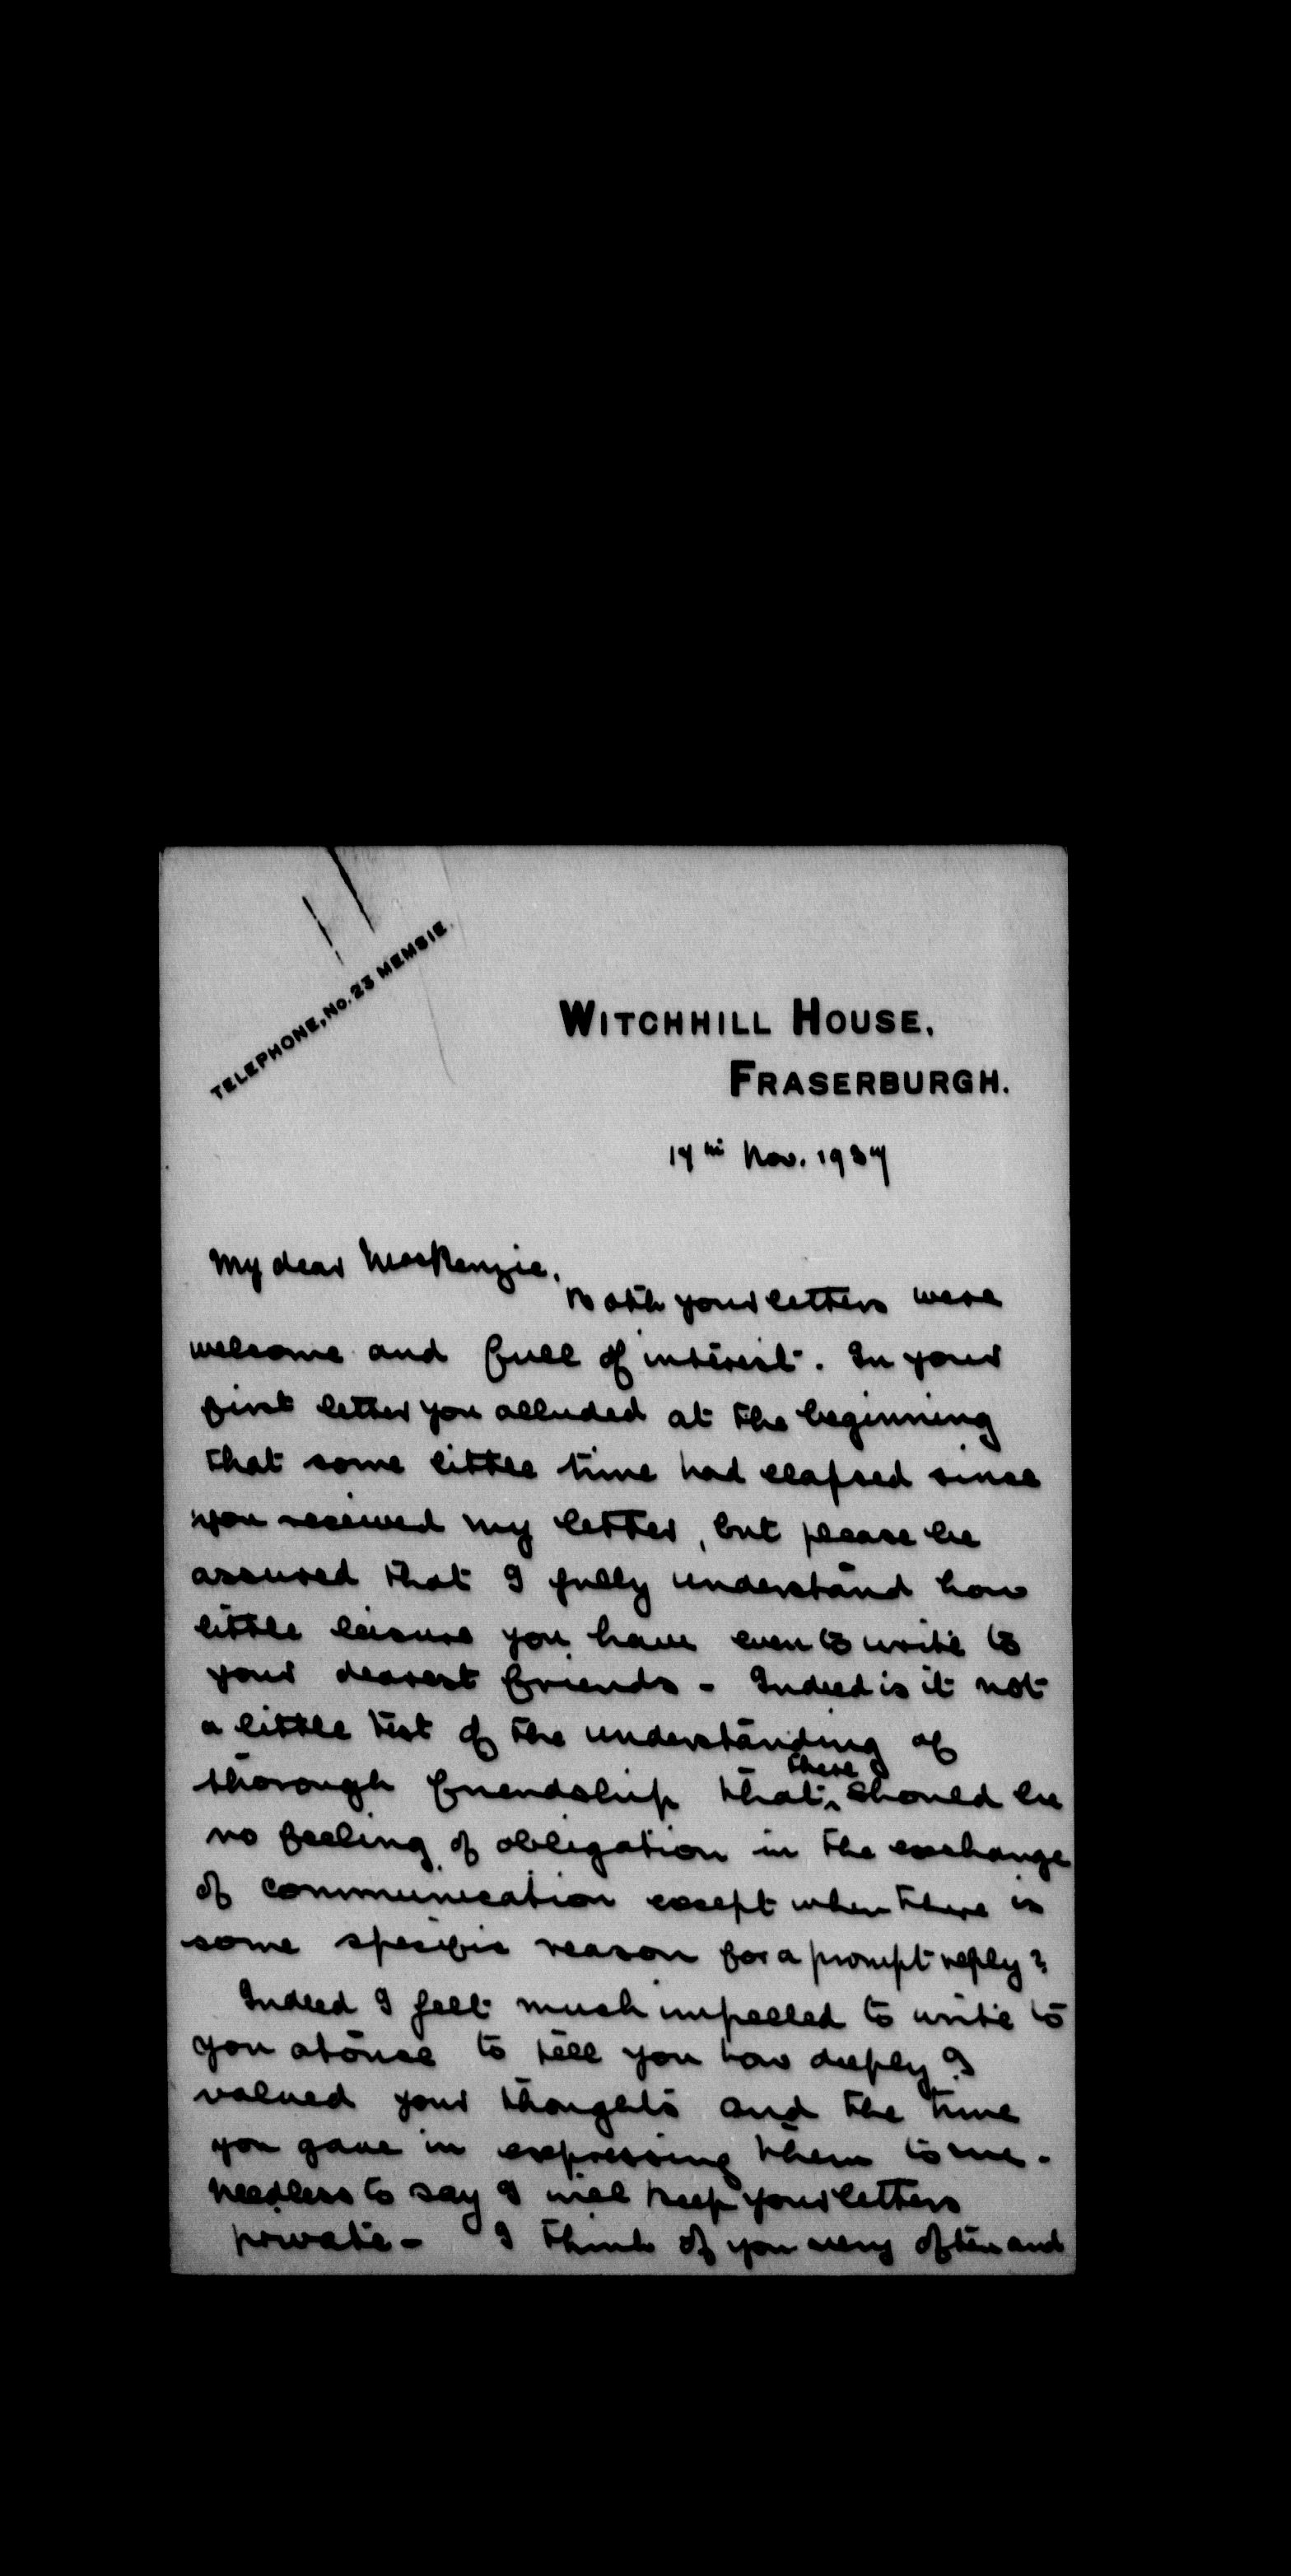 TELEPHONE, No. 23 MEMSIE.
WITCHHILL HOUSE,
FRASERBURGH.
17th Nov. 1937
My dear MacKenzie,
Both your letters were
welcome and full of interest. In your
first letter you alluded at the beginning
that some little time had elapsed since
you received my letter, but please be
assured that I fully understand how
little leisure you have even to write to
your dearest friends - Indeed is it not
a little test of the understanding of
there
thorough friendship that ^ should be
no feeling of obligation in the exchange
of communication except when there is
some specific reason for a prompt reply?
Indeed I felt much impelled to write to
you at once to tell you how deeply I
valued your thoughts and the time
you gave in expressing them to me.
Needless to say I will keep your letters
private - I think of you very often and